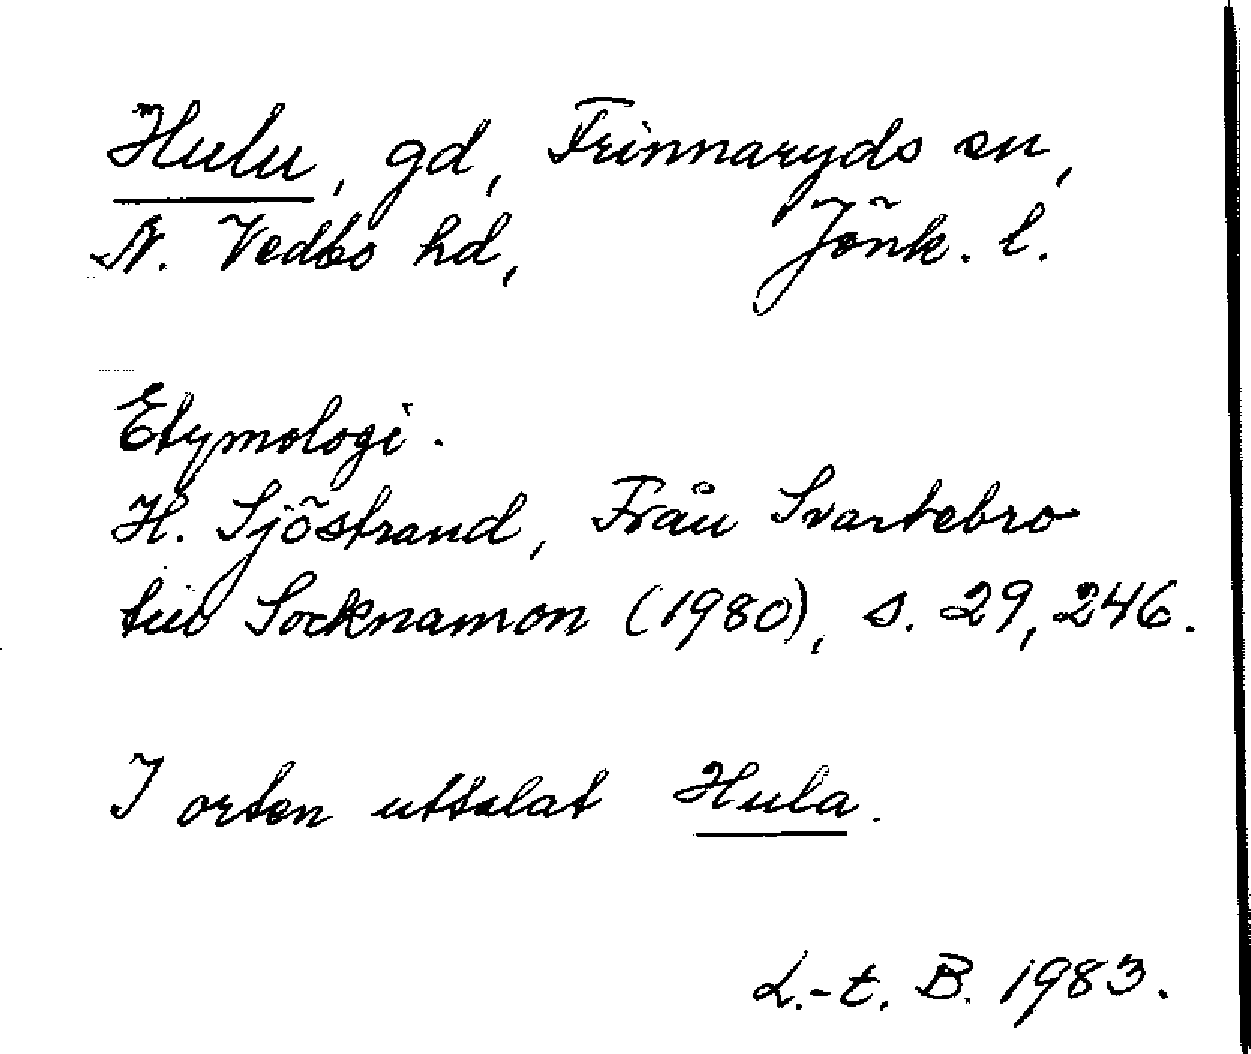 Hulu, gd, Frinnaryds sn,
N. Vedbo hd, Jönk. l.
Etymologi.
H. Sjöstrand, Från Svartebro
till Socknamon (1980), s. 29, 246.
I orten uttalat Hula.
L.-t. B. 1983.